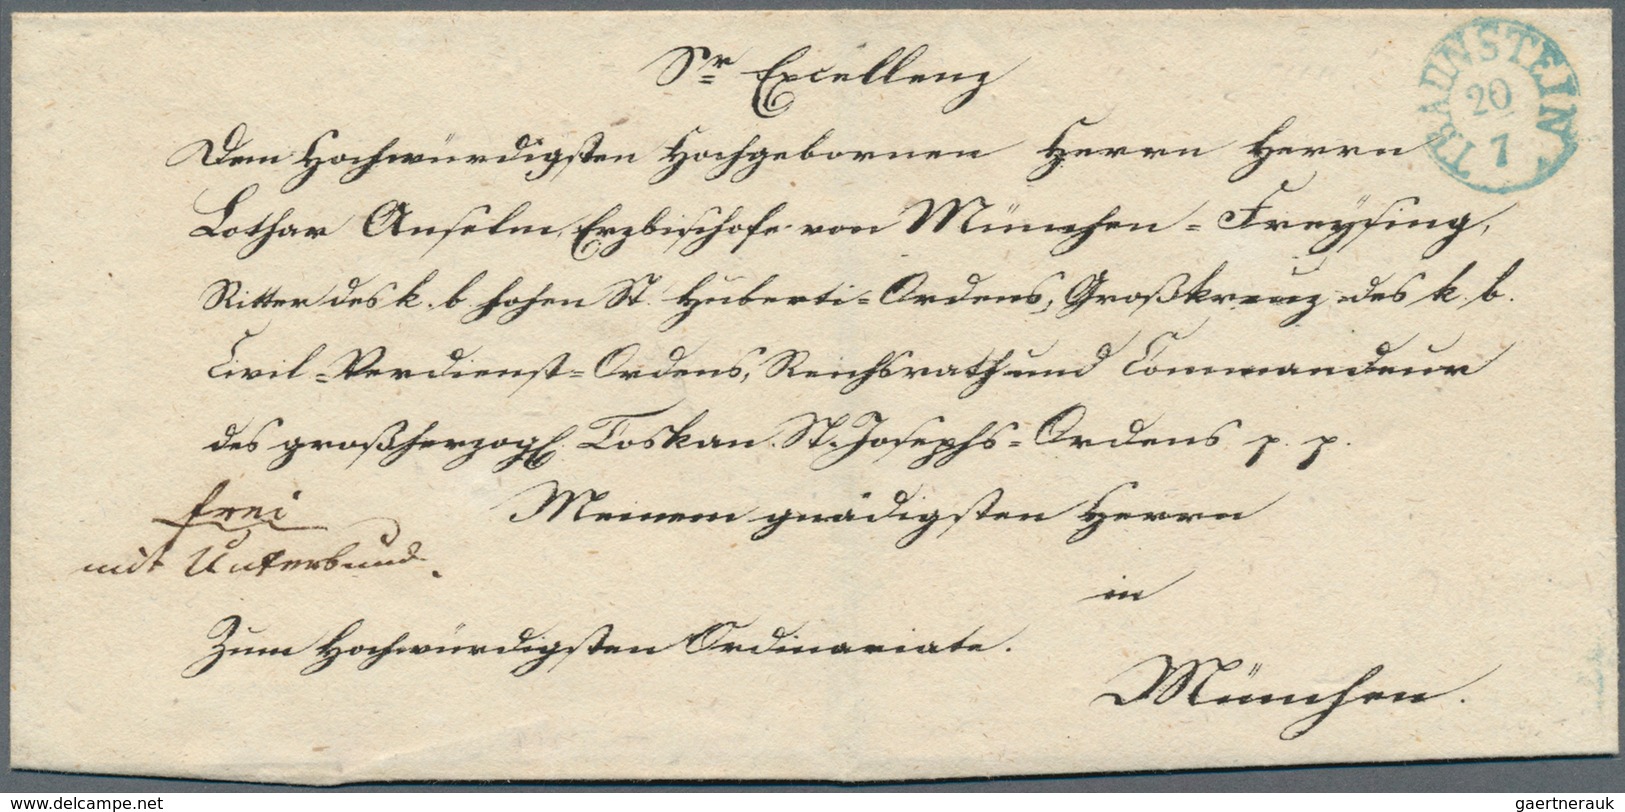 Sr Excellenz
TRAUNSTEIN
20
7
Dem Hochwürdigsten Hochgebornen Herrn Herrn
Lothar Anselm, Erzbischofe von München=Freysing,
Ritter des k. b. hohen St. Huberti=Ordens, Großkreuz des k. b.
Civil=Verdienst=Ordens, Reichsrath und Commandeur
des großherzogl. Toskan. St. Josephs=Ordens p. p.
frei
Meinem gnädigsten Herrn
mit Unterbund.
in
Zum Hochwürdigsten Ordinariate.
München.
delcampe.net
gaertnerauk